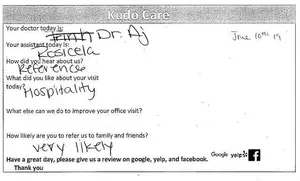 Kudo Care
Your doctor today is: Dr. Aj June 10th 19
Your assistant today is:
Kosicela
How did you hear about us?
Reference
What did you like about your visit
today? Hospitality
What else can we do to improve your office visit?
How likely are you to refer us to family and friends?
very likely
Google yelp f
Have a great day, please give us a review on google, yelp, and facebook.
Thank you